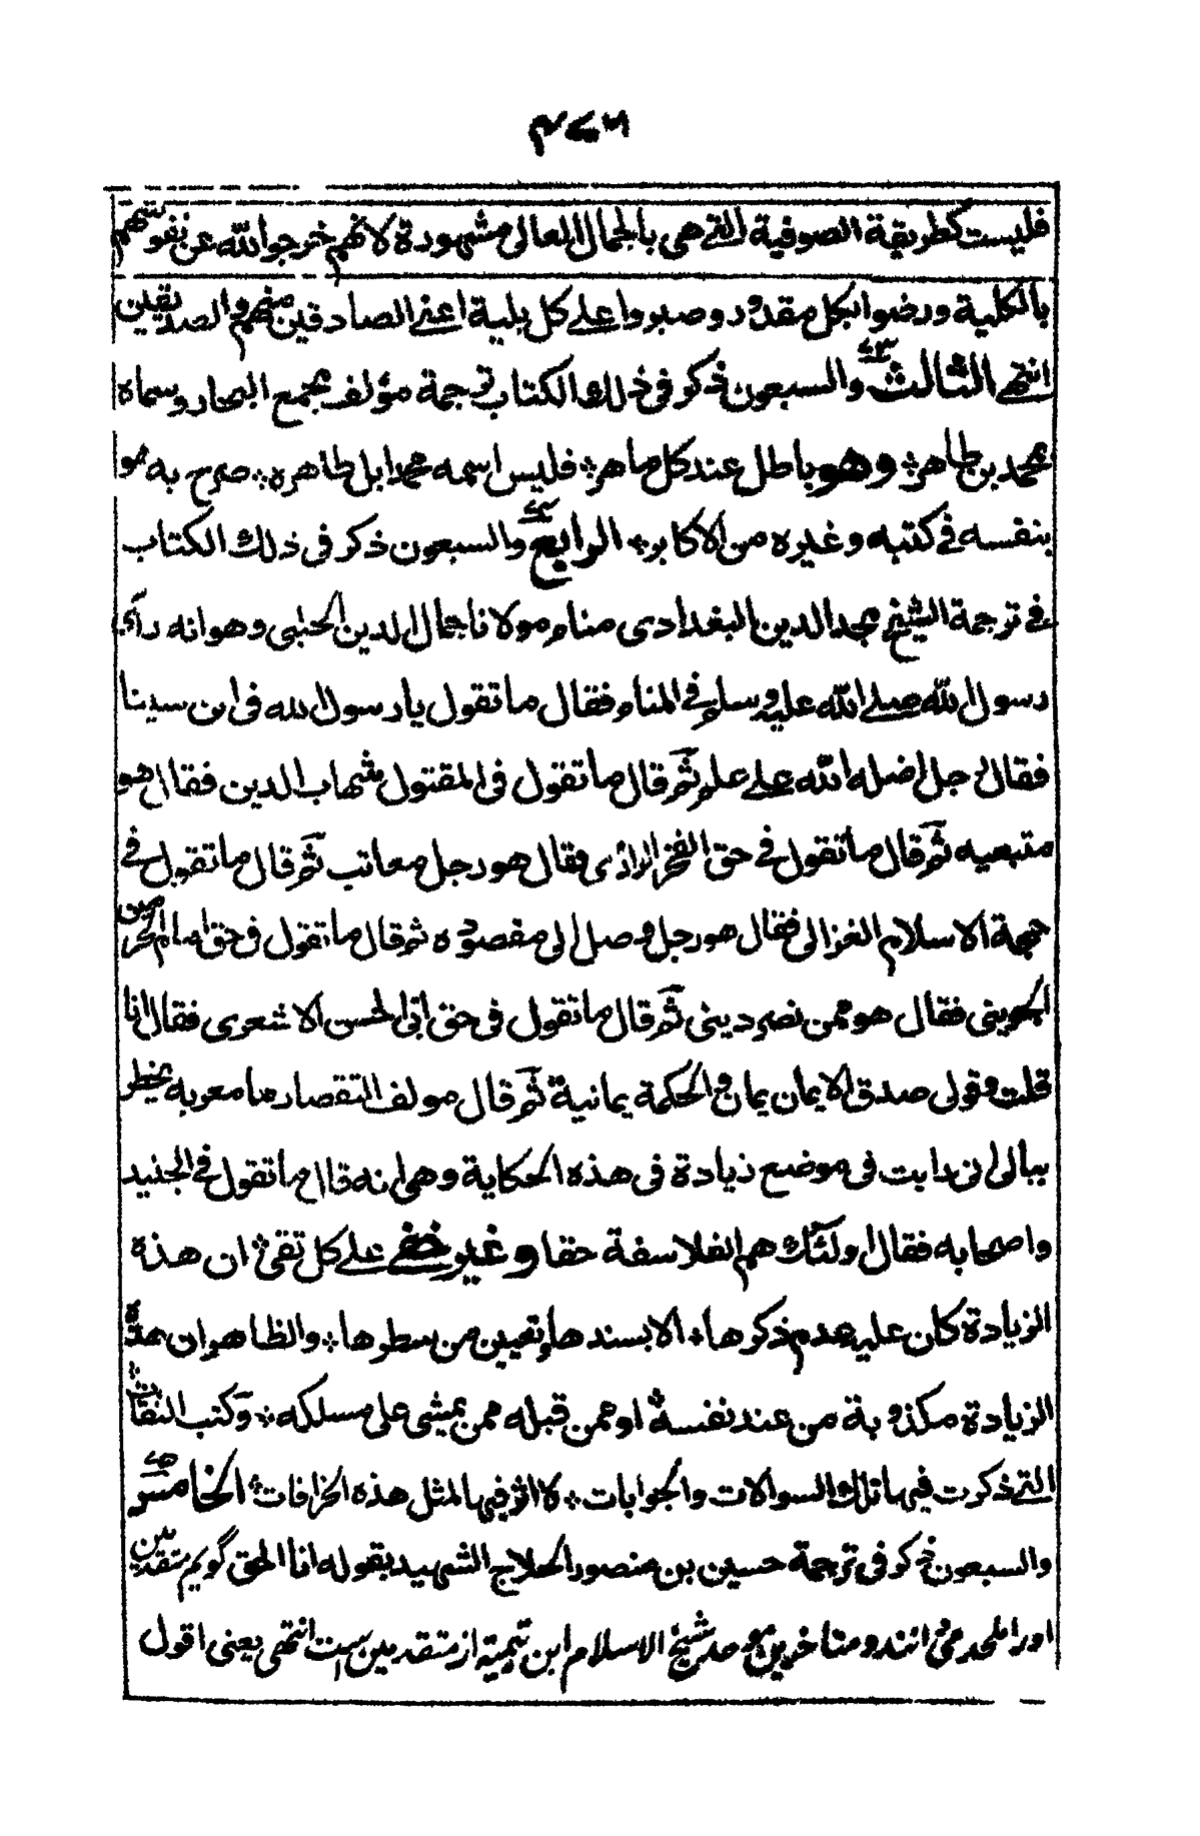 ٤٧٦
فليست كطريقة الصوفية التي هي بالجمال المعالى مشهودة لانهم خرجوا لله عن نفوسهم
بالكلية ورضوا بكل مقدور وصبروا على كل بلية اعنى الصادقين منهم والصديقين
انتهى الثالث والسبعون ذكر فى ذلك الكتاب ترجمة مؤلف مجمع البحار وسماه
بمحمد بن طاهر وهو باطل عند كل ماهر فليس اسمه محمدا بل طاهره صرح به هو
بنفسه في كتبه وغيره من الاكابر الرابع والسبعون ذكر فى ذلك الكتاب
في ترجمة الشيخ مجد الدين البغدادى منام مولانا جمال الدين الحلبى وهو انه رأى
رسول الله صلى الله عليه وسلم في المنام فقال ما تقول يا رسول الله فى ابن سينا
فقال رجل اضله الله على علم ثم قال ما تقول فى المقتول شهاب الدين فقال هو
متبعيه ثم قال ما تقول في حق الفخر الرازى فقال هو رجل معاتب ثم قال ما تقول في
حجة الاسلام الغزالى فقال هو رجل وصل الى مقصوده ثم قال ما تقول فى حق امام الحرمين
الجوينى فقال هو ممن نصر دينى ثم قال ما تقول فى حق ابى الحسن الاشعرى فقال انا
قلت وقولى صدق الايمان يمان والحكمة يمانية ثم قال مولف التقصار ما معربه يخطر
ببالى انى رايت فى موضع زيادة فى هذه الحكاية وهى انه قال ما تقول في الجنيد
واصحابه فقال اولئك هم الفلاسفة حقا وغير خفى على كل تقى ان هذه
الزيادة كان عليه عدم ذكرها الا بسندها وتعيين من سطرها والظاهر ان هذه
الزيادة مكذوبة من عند نفسه او ممن قبله ممن يمشى على مسلكه وكتب الثقات
التي ذكرت فيها تلك السوالات والجوابات لا اثر فيها لمثل هذه الخرافات الخامس
والسبعون ذكر فى ترجمة حسين بن منصور الحلاج الشهيد بقوله انا الحق گويم متقدمين
اورا ملحد مى دانند ومتاخرين موحد شيخ الاسلام ابن تيمية از متقدمين ست انتهى يعنى اقول